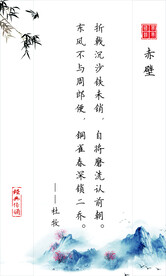 赤壁
折戟沉沙铁未销，自将磨洗认前朝。
东风不与周郎便，铜雀春深锁二乔。
——杜牧
经典传诵